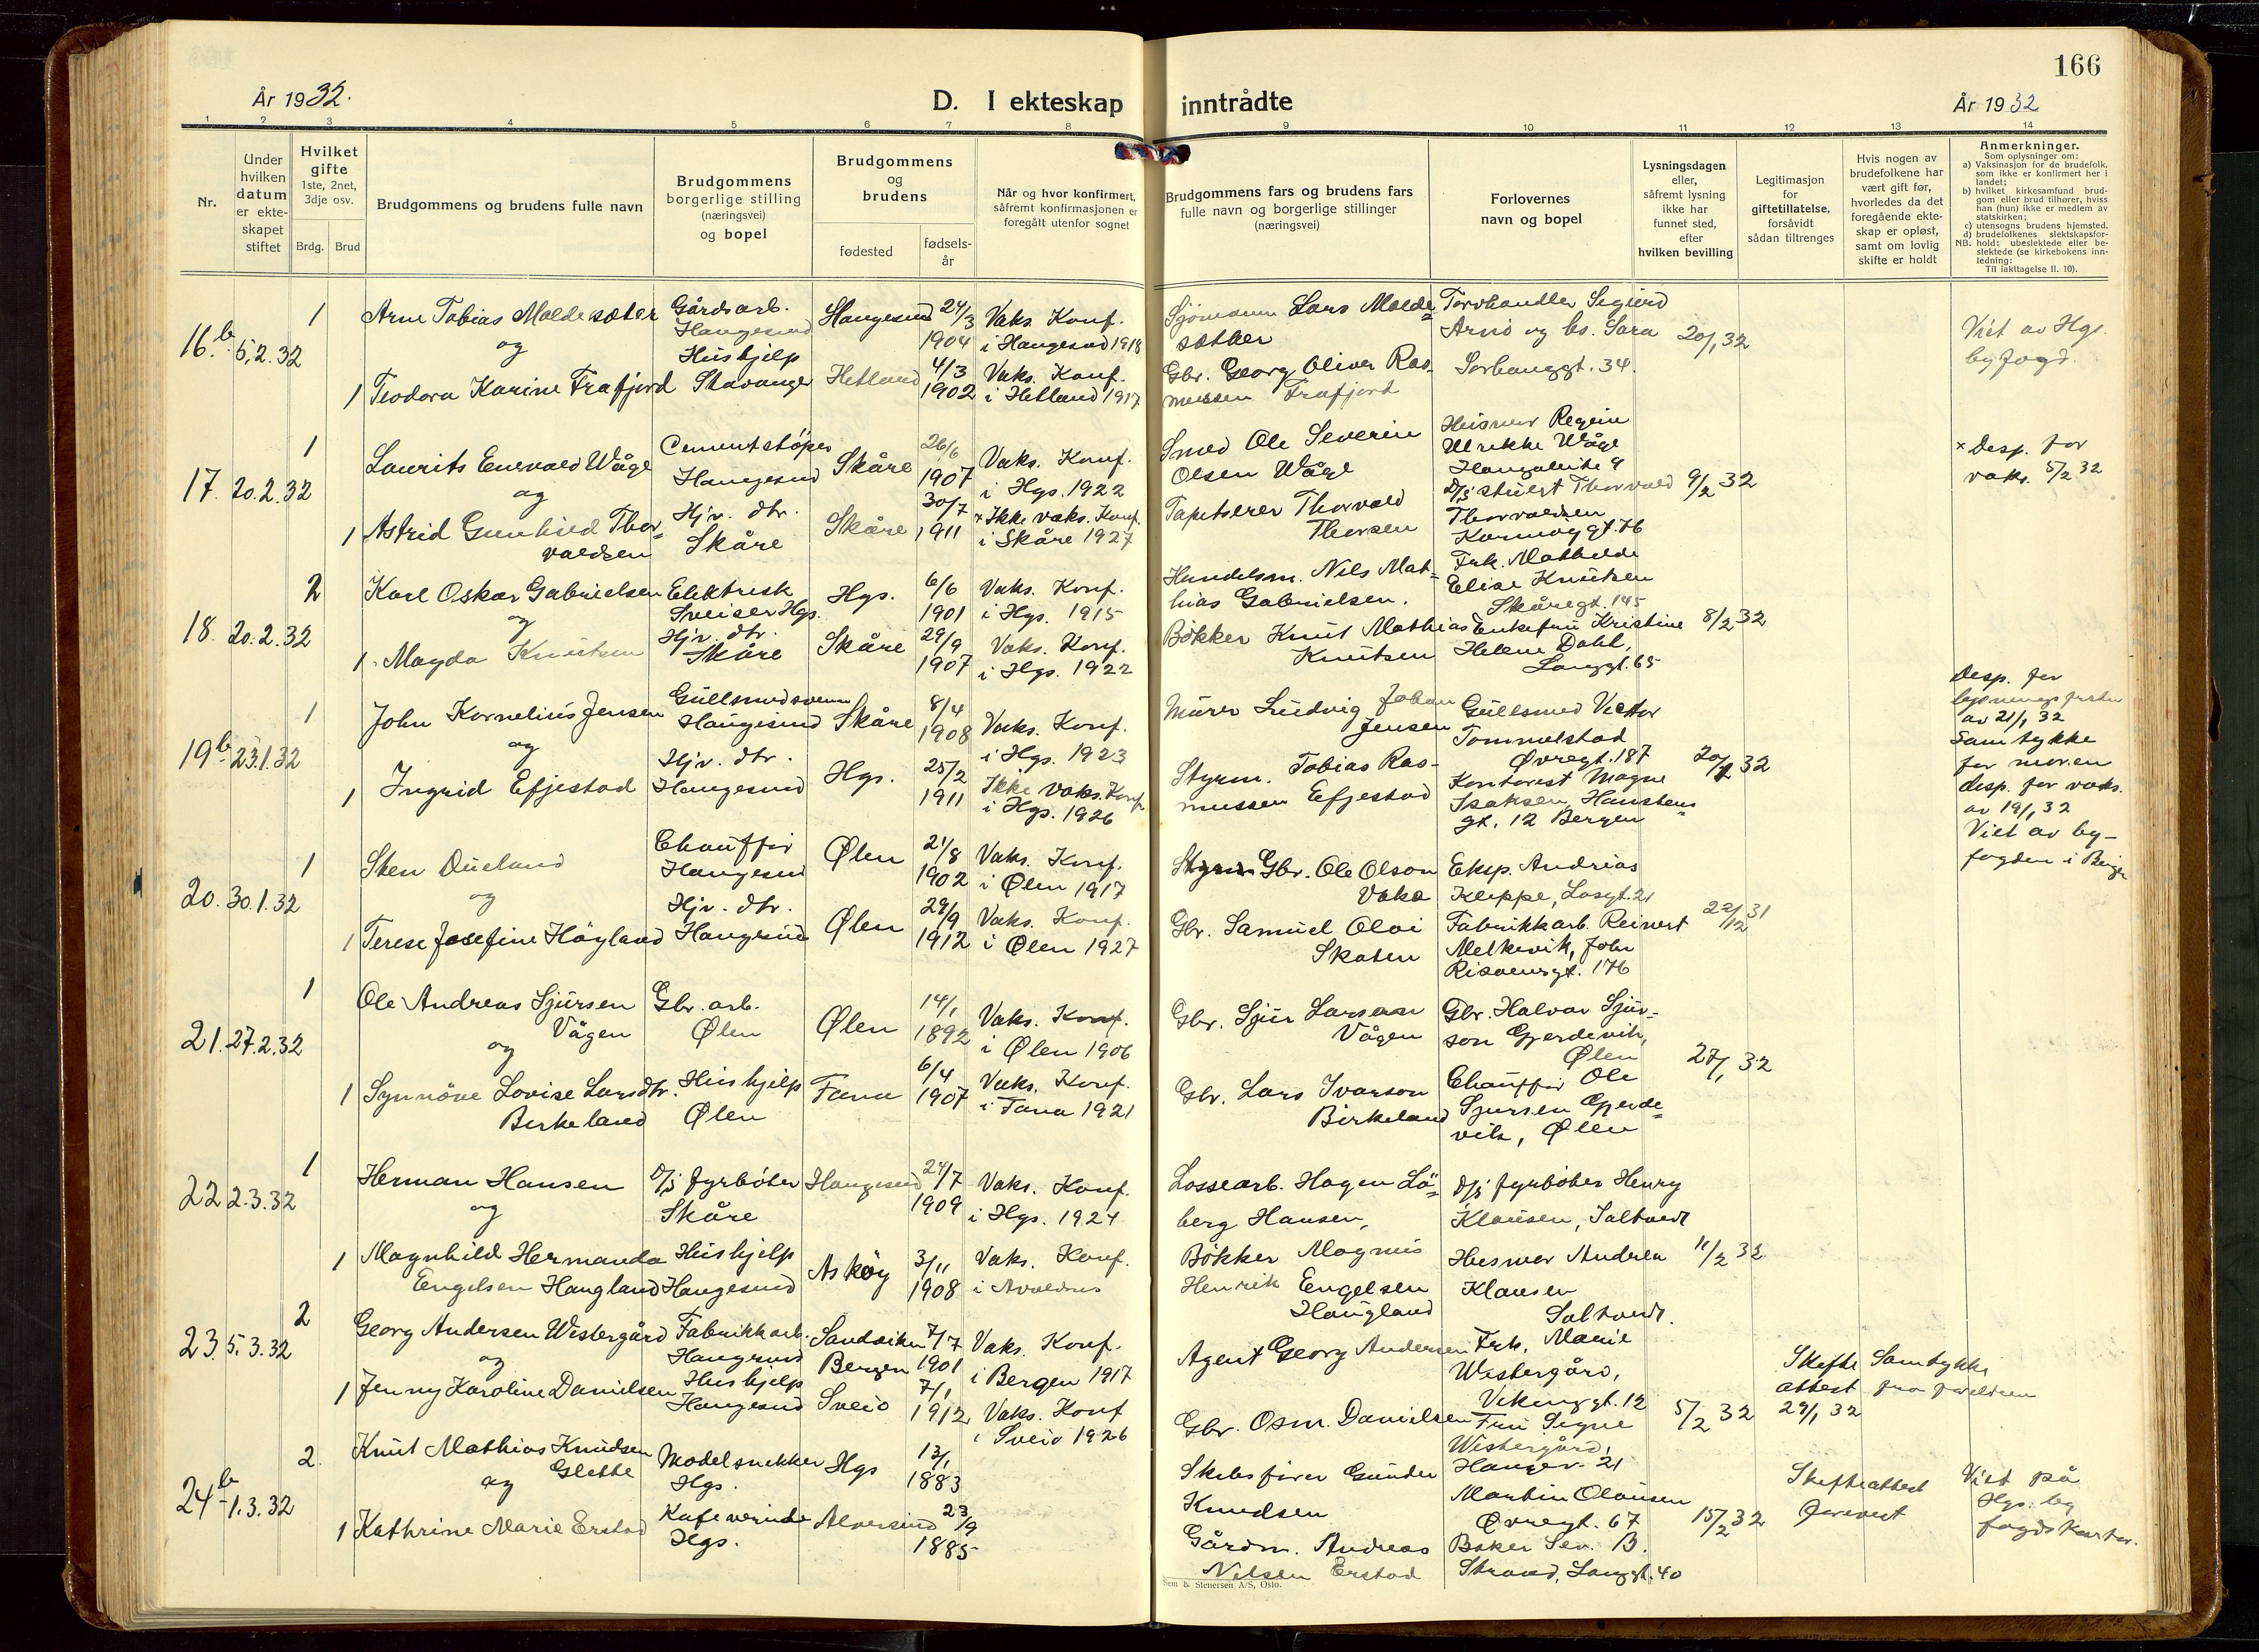 166
År 1932.
D. I ekteskap inntrådte
År 1932
1 2 3 4 5 6 7 8 9 10 11 12 13 14
Nr.
Under hvilken datum er ekteskapet stiftet
Hvilket gifte
1ste, 2net, 3dje osv.
Brdg. Brud
Brudgommens og brudens fulle navn
Brudgommens borgerlige stilling (næringsvei) og bopel
Brudgommens og brudens
fødested
fødsels-år
Når og hvor konfirmert, såfremt konfirmasjonen er foregått utenfor sognet
Brudgommens fars og brudens fars fulle navn og borgerlige stillinger (næringsvei)
Forlovernes navn og bopel
Lysningsdagen eller, såfremt lysning ikke har funnet sted, efter hvilken bevilling
Legitimasjon for giftetillatelse, forsåvidt sådan tiltrenges
Hvis nogen av brudefolkene har vært gift før, hvorledes da det foregående ekteskap er opløst, samt om lovlig skifte er holdt
Anmerkninger.
Som oplysninger om:
a) Vaksinasjon for de brudefolk, som ikke er konfirmert her i landet;
b) hvilket kirkesamfund brudgom eller brud tilhører, hviss han (hun) ikke er medlem av statskirken;
c) utensogns brudens hjemsted.
d) brudefolkenes slektskapsforhold: ubeslektede eller beslektede (se kirkebokens innledning:
NB.
Til iakttagelse II. 10).
16.b 5.2.32 1
Arne Tobias Maldesæter
og
1 Teodora Karine Frafjord
Gårdsarb.
Haugesund
Hushjelp
Stavanger
Haugesund 24/3 1904
Hetland 4/3 1902
Vaks. Konf.
i Haugesund 1918
Vaks. Konf.
i Hetland 1917
Sjömann Lars Malde=
sæther
Gbr. Georg Oliver Ras-
mussen Frafjord
Torvhandler Sigurd
Arnö og hs. Sara
Sørhauggt. 34.
20/1 32
Viet av Hgs.
byfogd.
17. 20.2.32 1
Laurits Enevald Våge
og
1 Astrid Gunhild Thor=
valdsen
Cementstøper
Haugesund
Hjv. dtr.
Skåre
Skåre 26/6 1907
Skåre 30/7 1911
Vaks. Konf.
i Hgs. 1922
x Ikke vaks. Konf.
i Skåre 1927
Smed Ole Severin
Olsen Våge
Tapetserer Thorvald
Thorsen
Husmor Regine
Ulrikke Våge
D/s stuert Thorvald
Thorvaldsen
Karmøygt. 76
9/2 32
x Desp. for
vaks. 5/2 32
18. 20.2.32 2
Karl Oskar Gabrielsen
og
1. Magda Knutsen
Elektrisk
Sveiser Hgs.
Hjv. dtr.
Skåre
Hgs. 6/6 1901
Skåre 29/9 1907
Vaks. Konf.
i Hgs. 1915
Vaks. Konf.
i Hgs. 1922
Handelsm. Nils Mat=
hias Gabrielsen.
Bøkker Knut Mathias
Knutsen
Frk. Mathilde
Elise Knutsen
Skåregt. 145
Enkefru Kristine
Helene Dahl,
Langgt. 65
8/2 32
19b 23.1.32 1
John Kornelius Jensen
og
1 Ingrid Efjestad
Gullsmedsvenn
Haugesund
Hjv. dtr.
Haugesund
Skåre 8/4 1908
Hgs. 25/2 1911
Vaks. Konf.
i Hgs. 1923
Ikke vaks. Konf
i Hgs. 1926
Murer Ludvig Johan
Jensen
Styrm. Tobias Ras-
mussen Efjestad
Gullsmed Victor
Tommelstad
Øvregt. 187
Kontorist Magne
Isaksen, Hansteens=
gt. 12 Bergen
20/1 32
Desp. for
lysningsfristen
av 21/1 32
Samtykke
for moren
desp. for vaks.
av 19/1 32
Viet av by-
fogden i Bergen
20. 30.1.32 1
Sten Dueland
og
1 Terese Josefine Höyland
Chauffør
Haugesund
Hjv. dtr.
Haugesund
Ølen 21/8 1902
Ølen 29/9 1912
Vaks. Konf.
i Ølen 1917
Vaks. Konf.
i Ølen 1927
Gbr. Ole Olson
Vaka
Gbr. Samuel Olai
Skaten
Eksp. Andreas
Kleppe, Losgt. 21
Fabrikkarb. Reinert
Melkevik, John
Risøensgt. 176
22/12 31
21. 27.2.32 1
Ole Andreas Sjursen
Vågen
og
1 Synnöve Lovise Larsdtr.
Birkeland
Gbr. arb.
Ølen
Hushjelp
Ølen
Ølen 14/1 1892
Fana 6/4 1907
Vaks. Konf.
i Ølen 1906
Vaks. Konf.
i Fana 1921
Gbr. Sjur Larsen
Vågen
Gbr. Lars Ivarson
Birkeland
Gbr. Halvar Sjur-
son Gjerdevik,
Ølen
Chauffør Ole
Sjursen Gjerde=
vik, Ølen
27/1 32
22 2.3.32 1
Herman Hansen
og
1 Magnhild Hermanda
Engelsen Haugland
D/s fyrbøter
Skåre
Hushjelp
Haugesund
Haugesund 24/7 1909
Askøy 3/11 1908
Vaks. Konf.
i Hgs. 1924
Vaks. Konf.
i Avaldsnes
Lossearb. Hagen Lö=
berg Hansen,
Bøkker Magnus
Henrik Engelsen
Haugland
D/s fyrbøter Henry
Klausen, Saltveit
Husmor Andrea
Klausen
Saltveit.
11/2 32
23. 5.3.32 2
Georg Andersen Westergård
og
1 Jenny Karoline Danielsen
Fabrikkarb.
Haugesund
Hushjelp
Haugesund
Sandviken Bergen 7/7 1901
Sveio 7/1 1912
Vaks. Konf.
i Bergen 1917
Vaks. Konf
i Sveio 1926
Agent Georg Andersen
Gbr. Osm. Danielsen
Frk. Marie
Westergård,
Vikinggt. 12
Fru Signe
Westergård,
Haugev. 21
5/2 32
Skifte
attest
29/1 32
Samtykke
fra foreldrene
24b 1.3.32 2.
Knut Mathias Knudsen
og Glette
1 Kathrine Marie Erstad
Modelsnekker
Hgs.
Kafevertinde
Hgs.
Hgs 13/1 1883
Alversund 23/9 1885
Skibsfører Gunder
Knudsen
Gårdm. Andreas
Nilsen Erstad
Martin Olausen
Øvregt. 67
Baker Sev. B.
Strand, Langgt. 40
15/2 32
Skifteattest
forevist
Viet på
Hgs. by
fogdkontor.
Sem & Stenersen A/S, Oslo.